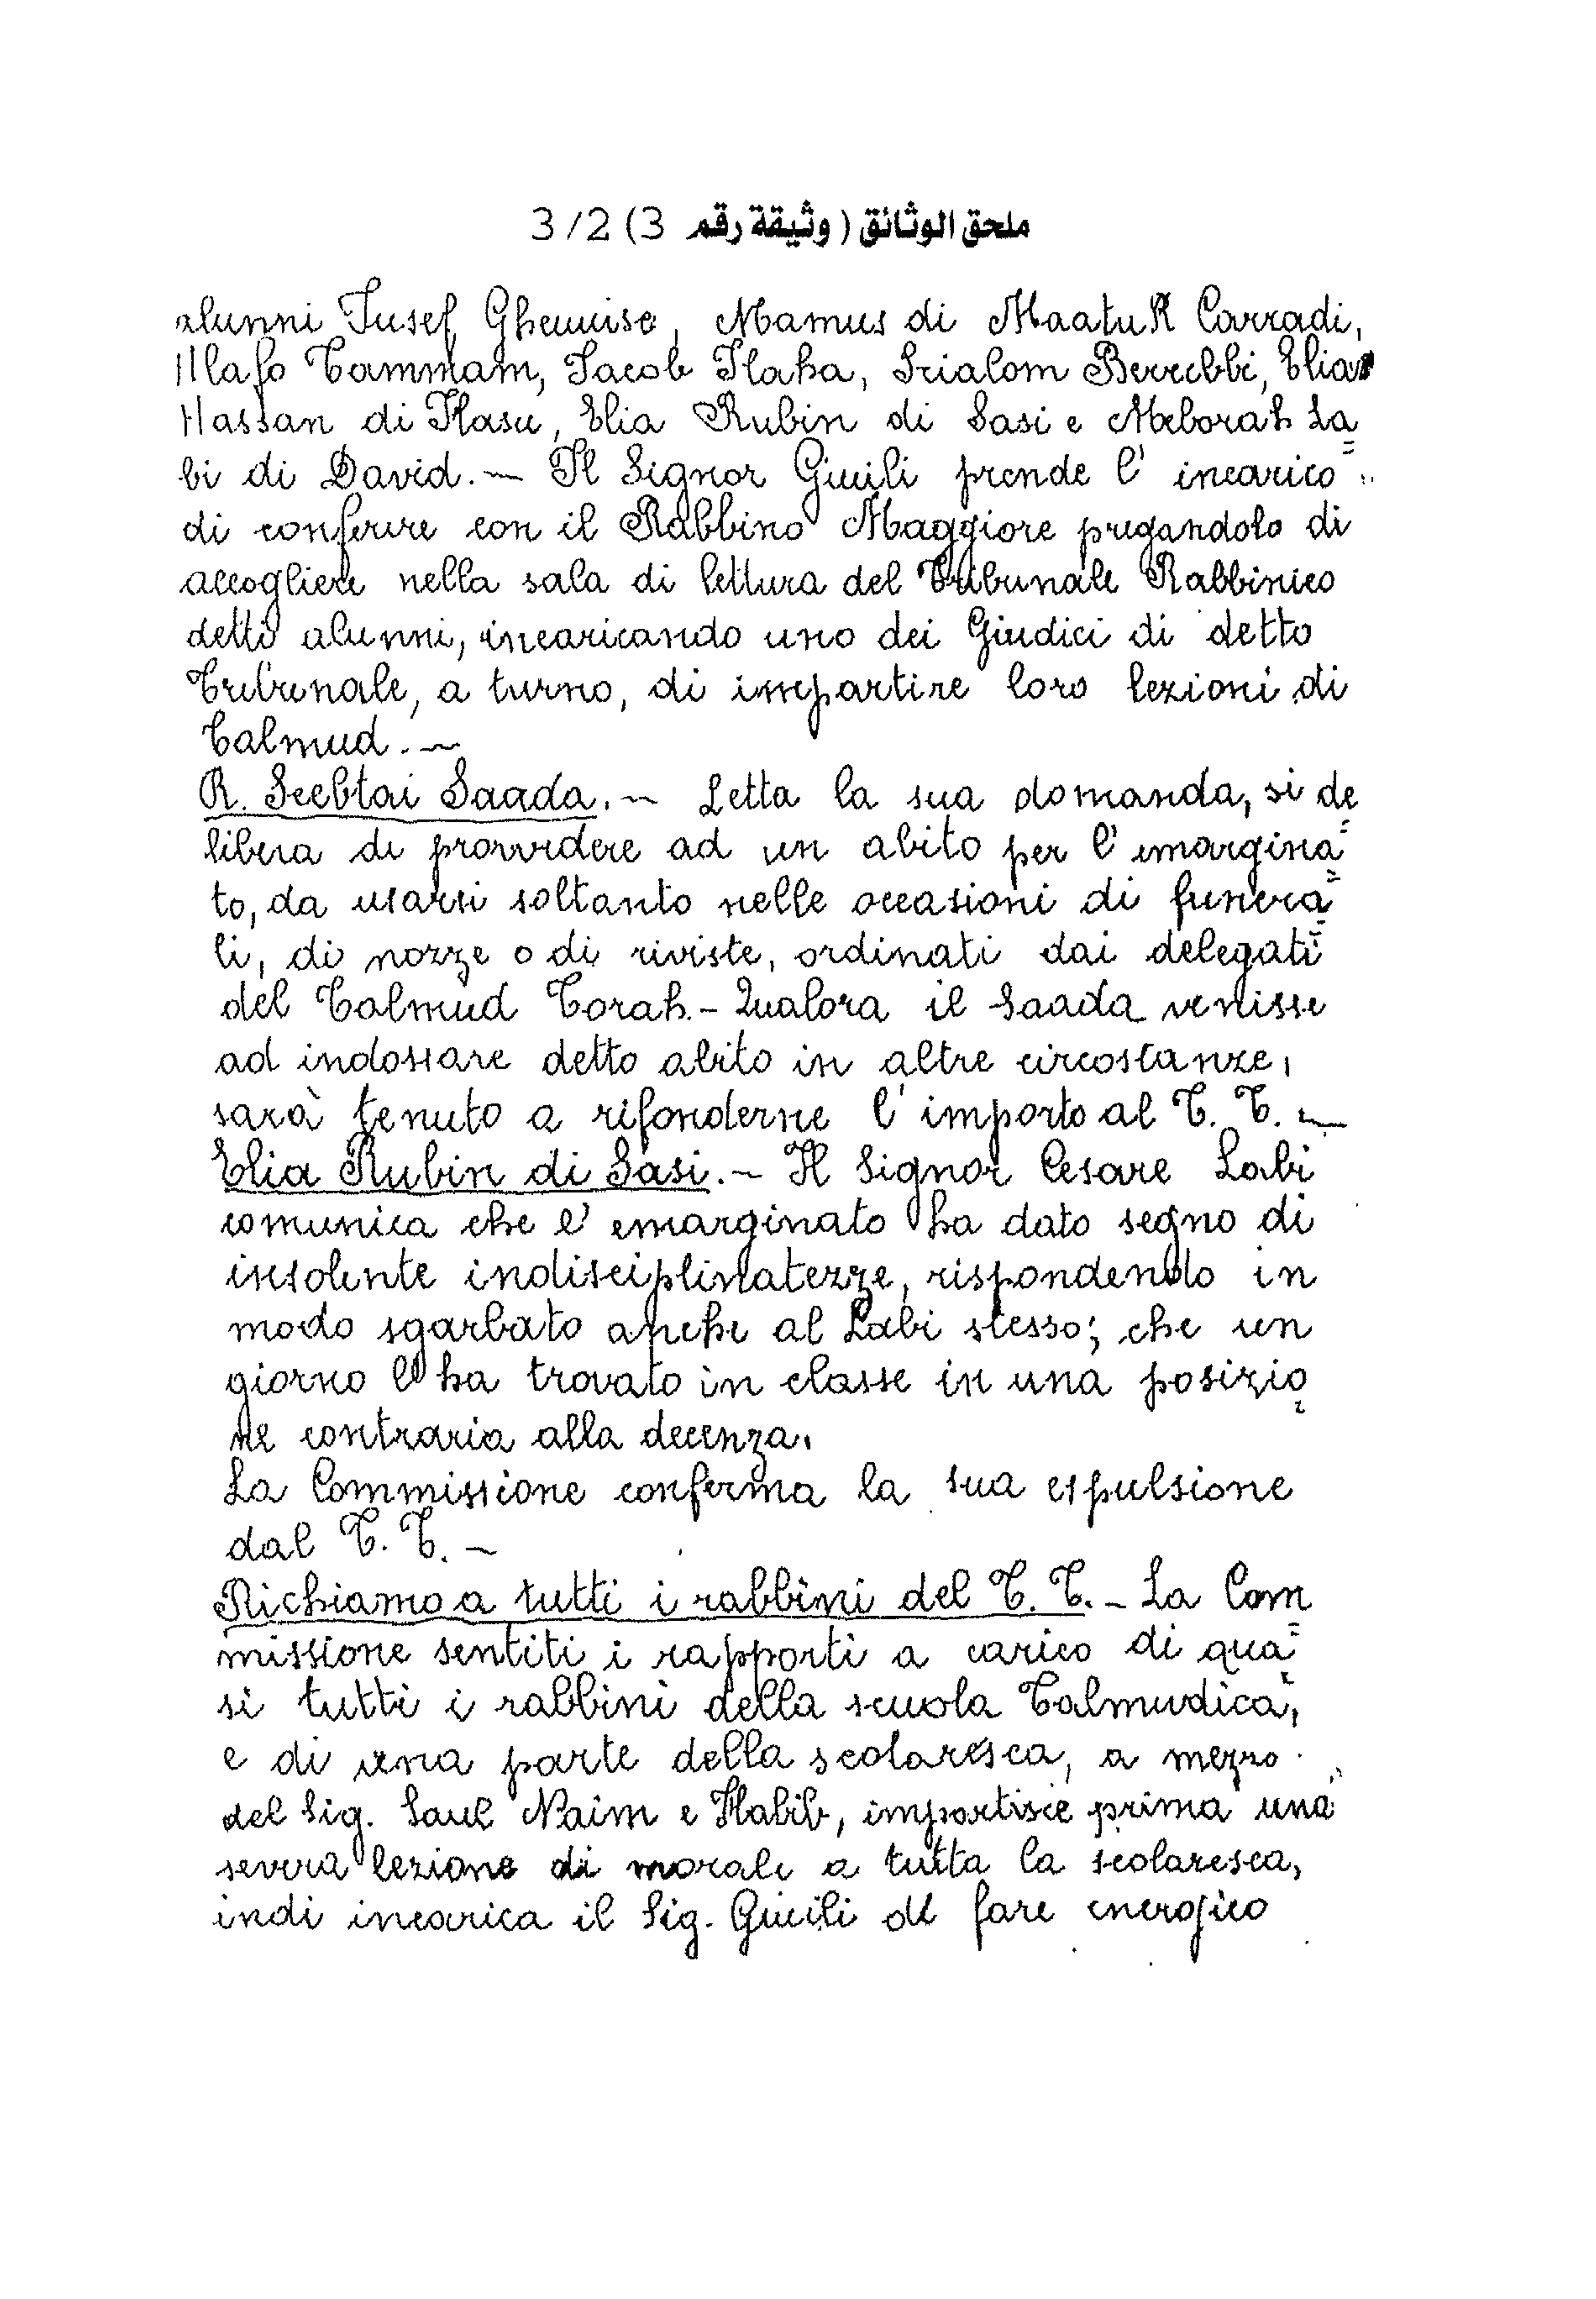 ملحق الوثائق ( وثيقة رقم 3) 3/2
alunni Jusef Gheuuise, Mamus di Maatuk Carradi,
Tammam, Jacob Haha, Scialom Berrebbi, Elia
Hassan di Hasu, Elia Rubin di Sasi e Meborah La=
bi di David.— Il Signor Giuili prende l'incarico
di conferire con il Rabbino Maggiore pregandolo di
accogliere nella sala di lettura del Tribunale Rabbinico
detti alunni, incaricando uno dei Giudici di detto
Tribunale, a turno, di impartire loro lezioni di
Talmud.—
R. Scebtai Saada.— Letta la sua domanda, si de=
libera di provvedere ad un abito per l'emargina=
to, da usarsi soltanto nelle occasioni di funera=
li, di nozze o di riviste, ordinati dai delegati
del Talmud Torah.- Qualora il Saada venisse
ad indossare detto abito in altre circostanze,
sarà tenuto a rifonderne l'importo al T. T.—
Elia Rubin di Sasi.— Il Signor Cesare Labi
comunica che l'emarginato ha dato segno di
insolente indisciplinatezze, rispondendo in
modo sgarbato anche al Labi stesso; che un
giorno l'ha trovato in classe in una posizio=
ne contraria alla decenza.
La Commissione conferma la sua espulsione
dal T. T.—
Richiamo a tutti i rabbini del T. T.- La Com=
missione sentiti i rapporti a carico di qua=
si tutti i rabbini della scuola Talmudica,
e di una parte della scolaresca, a mezzo
del Sig. Saul Naim e Habib, impartisce prima una
severa lezione di morale a tutta la scolaresca,
indi incarica il Sig. Giuili di fare energico